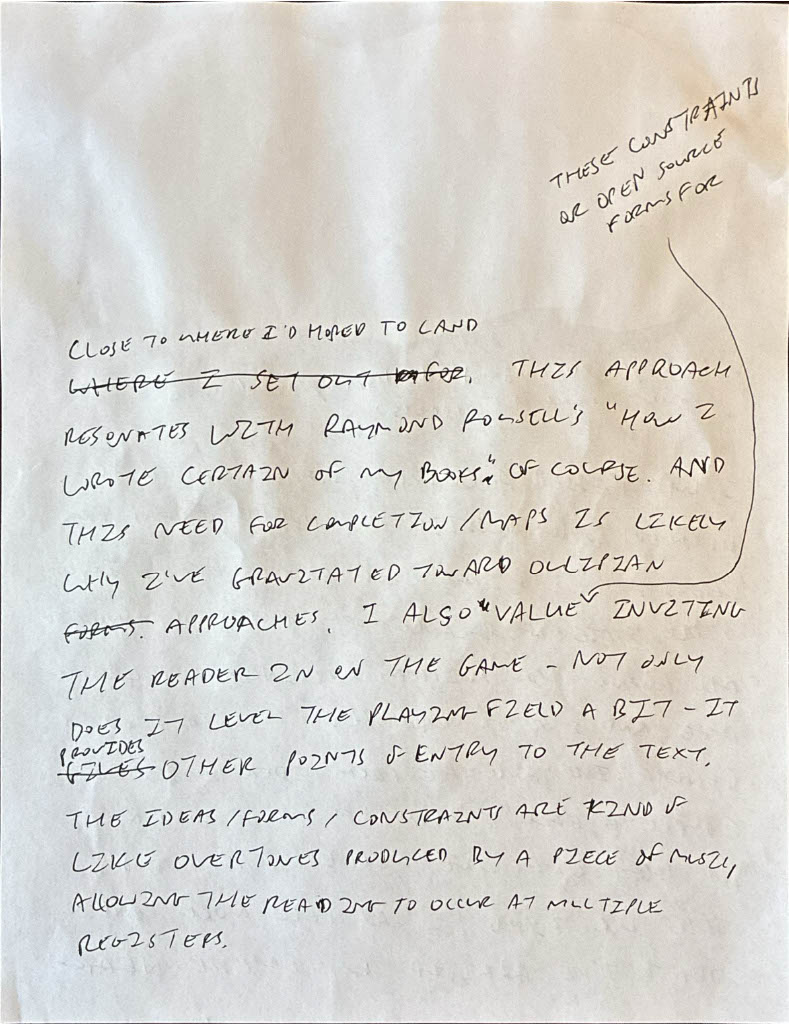 THESE CONSTRAINTS
OR OPEN SOURCE
FORMS FOR
CLOSE TO WHERE I'D HOPED TO LAND
WHERE I SET OUT FOR. THIS APPROACH
RESONATES WITH RAYMOND ROUSSELL'S "HOW I
WROTE CERTAIN OF MY BOOKS" OF COURSE. AND
THIS NEED FOR COMPLETION/MAPS IS LIKELY
WHY I'VE GRAVITATED TOWARD OULIPIAN
FORMS. APPROACHES. I ALSO VALUE INVITING
THE READER IN ON THE GAME - NOT ONLY
DOES IT LEVEL THE PLAYING FIELD A BIT - IT
PROVIDES
GIVES OTHER POINTS OF ENTRY TO THE TEXT.
THE IDEAS/FORMS/CONSTRAINTS ARE KIND OF
LIKE OVERTONES PRODUCED BY A PIECE OF MUSIC,
ALLOWING THE READING TO OCCUR AT MULTIPLE
REGISTERS.